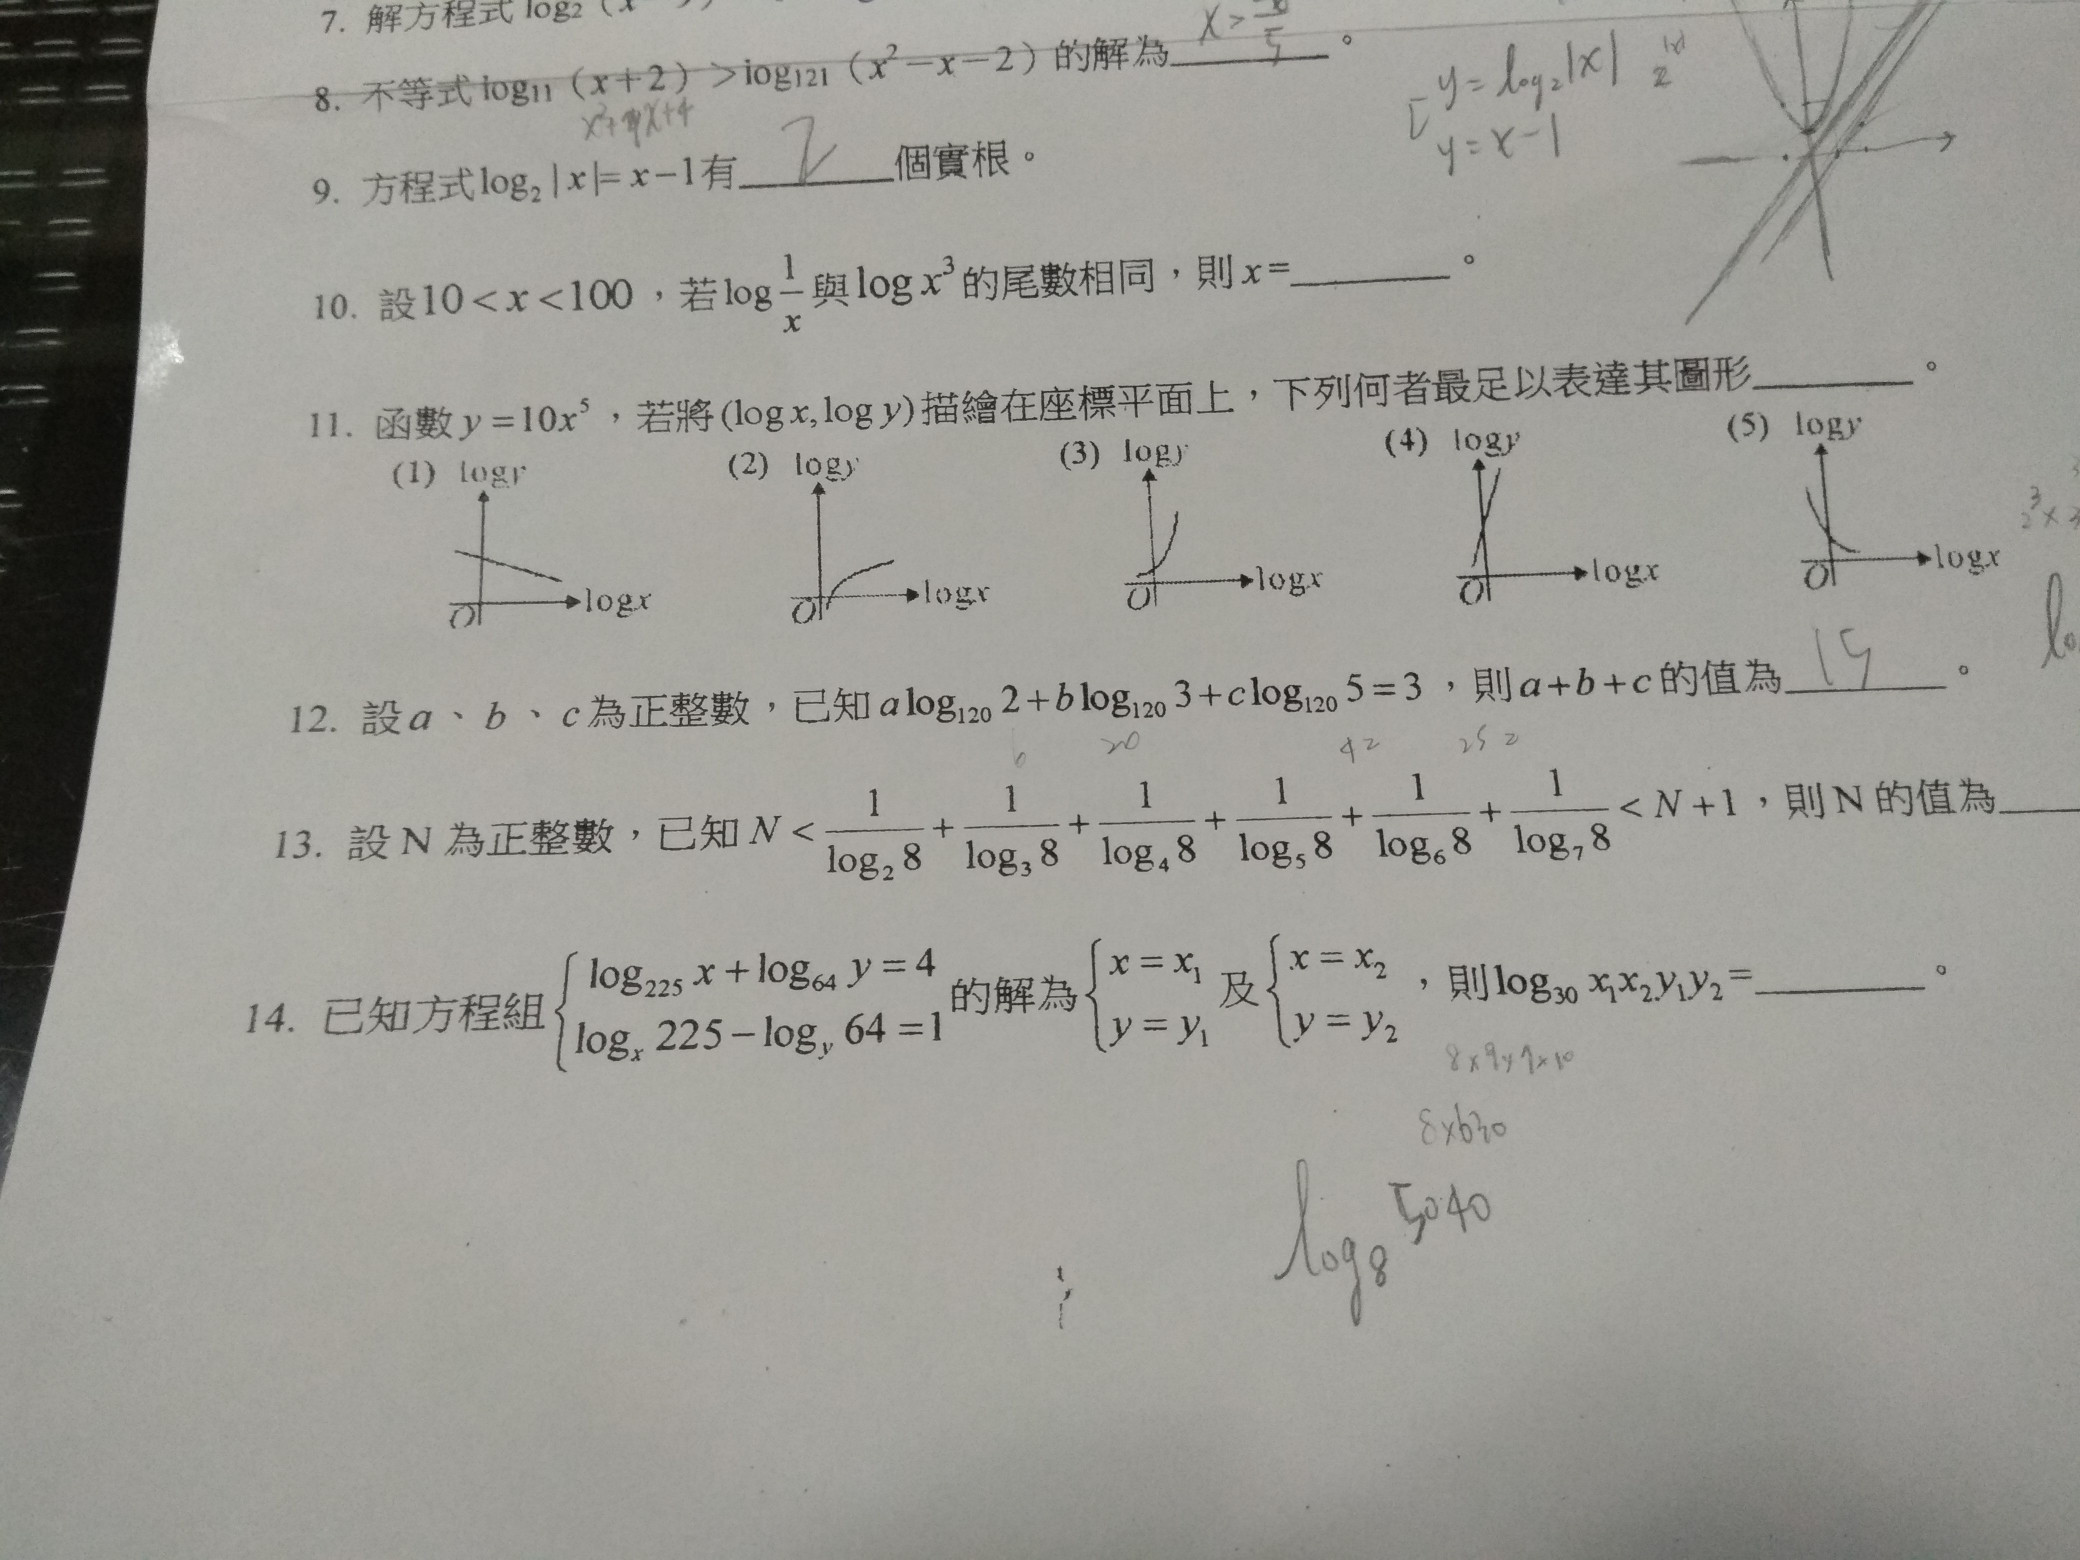 7. 解方程式 log₂ (x
8. 不等式 log₁₁ (x+2) >log₁₂₁ (x²−x−2) 的解為 x>
x²+4x+4
y = log₂|x|
y = x−1
9. 方程式 log₂ |x|= x−1有 2 個實根。
10. 設10<x<100，若log 1/x 與log x³ 的尾數相同，則 x=______。
11. 函數 y =10x⁵，若將(log x, log y) 描繪在座標平面上，下列何者最足以表達其圖形______。
(1) logy (2) logy (3) logy (4) logy (5) logy
O logx O logx O logx O logx O logx
12. 設a、b、c為正整數，已知 a log₁₂₀ 2+b log₁₂₀ 3+c log₁₂₀ 5=3，則a+b+c的值為 15 。
6 20 42 252
13. 設 N 為正整數，已知 N < 1/log₂ 8 + 1/log₃ 8 + 1/log₄ 8 + 1/log₅ 8 + 1/log₆ 8 + 1/log₇ 8 < N +1，則 N 的值為
14. 已知方程組 { log₂₂₅ x + log₆₄ y = 4 log_x 225 − log_y 64 =1 的解為 { x = x₁ y = y₁ 及 { x = x₂ y = y₂ ，則log₃₀ x₁x₂y₁y₂ =______。
8×630
log₈ 5040